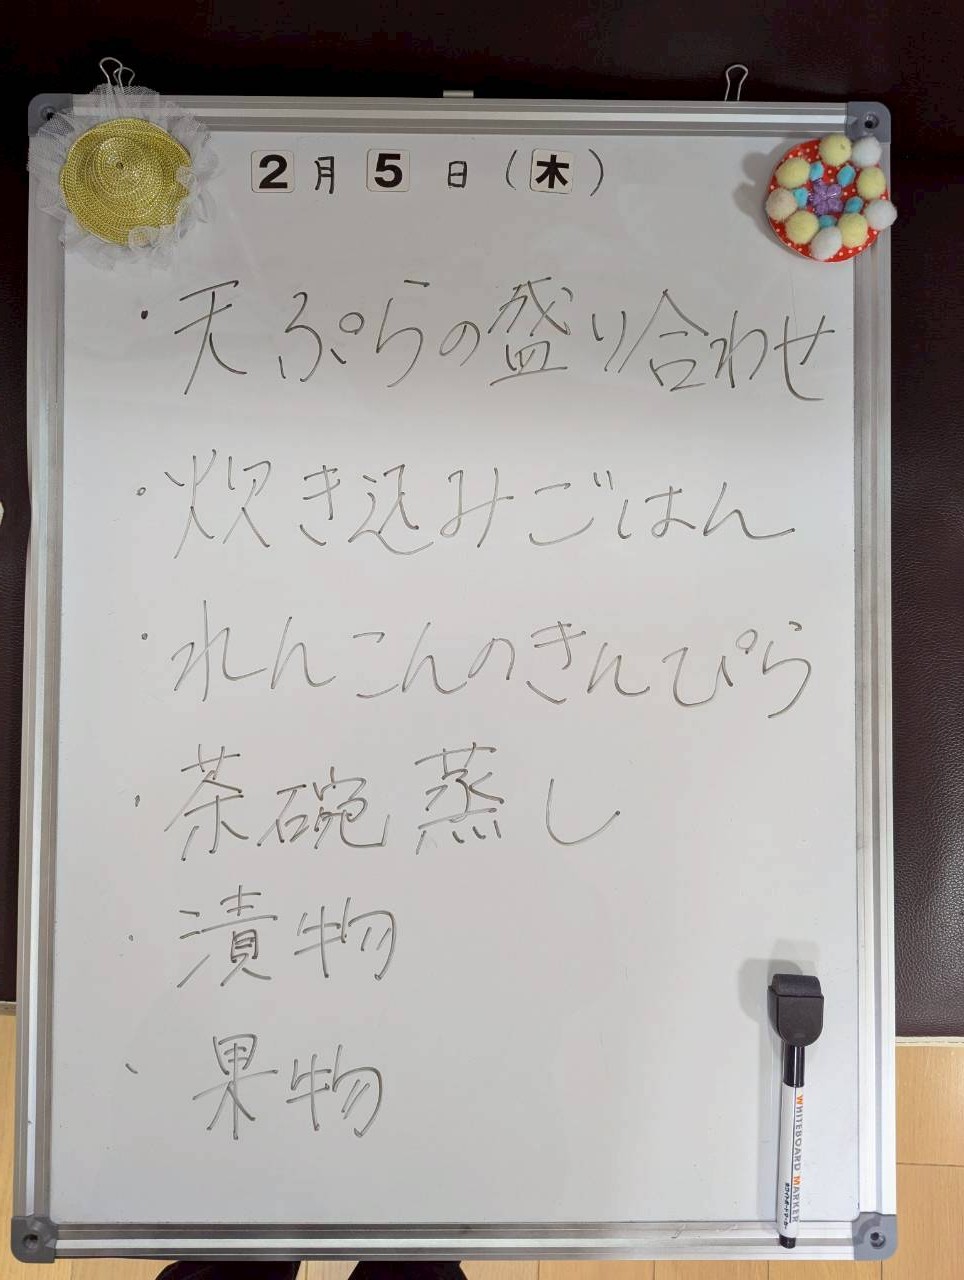 2月5日(木)
・天ぷらの盛り合わせ
・炊き込みごはん
・れんこんのきんぴら
・茶碗蒸し
・漬物
・果物
WHITEBOARD MARKER
ホワイトボードマーカー